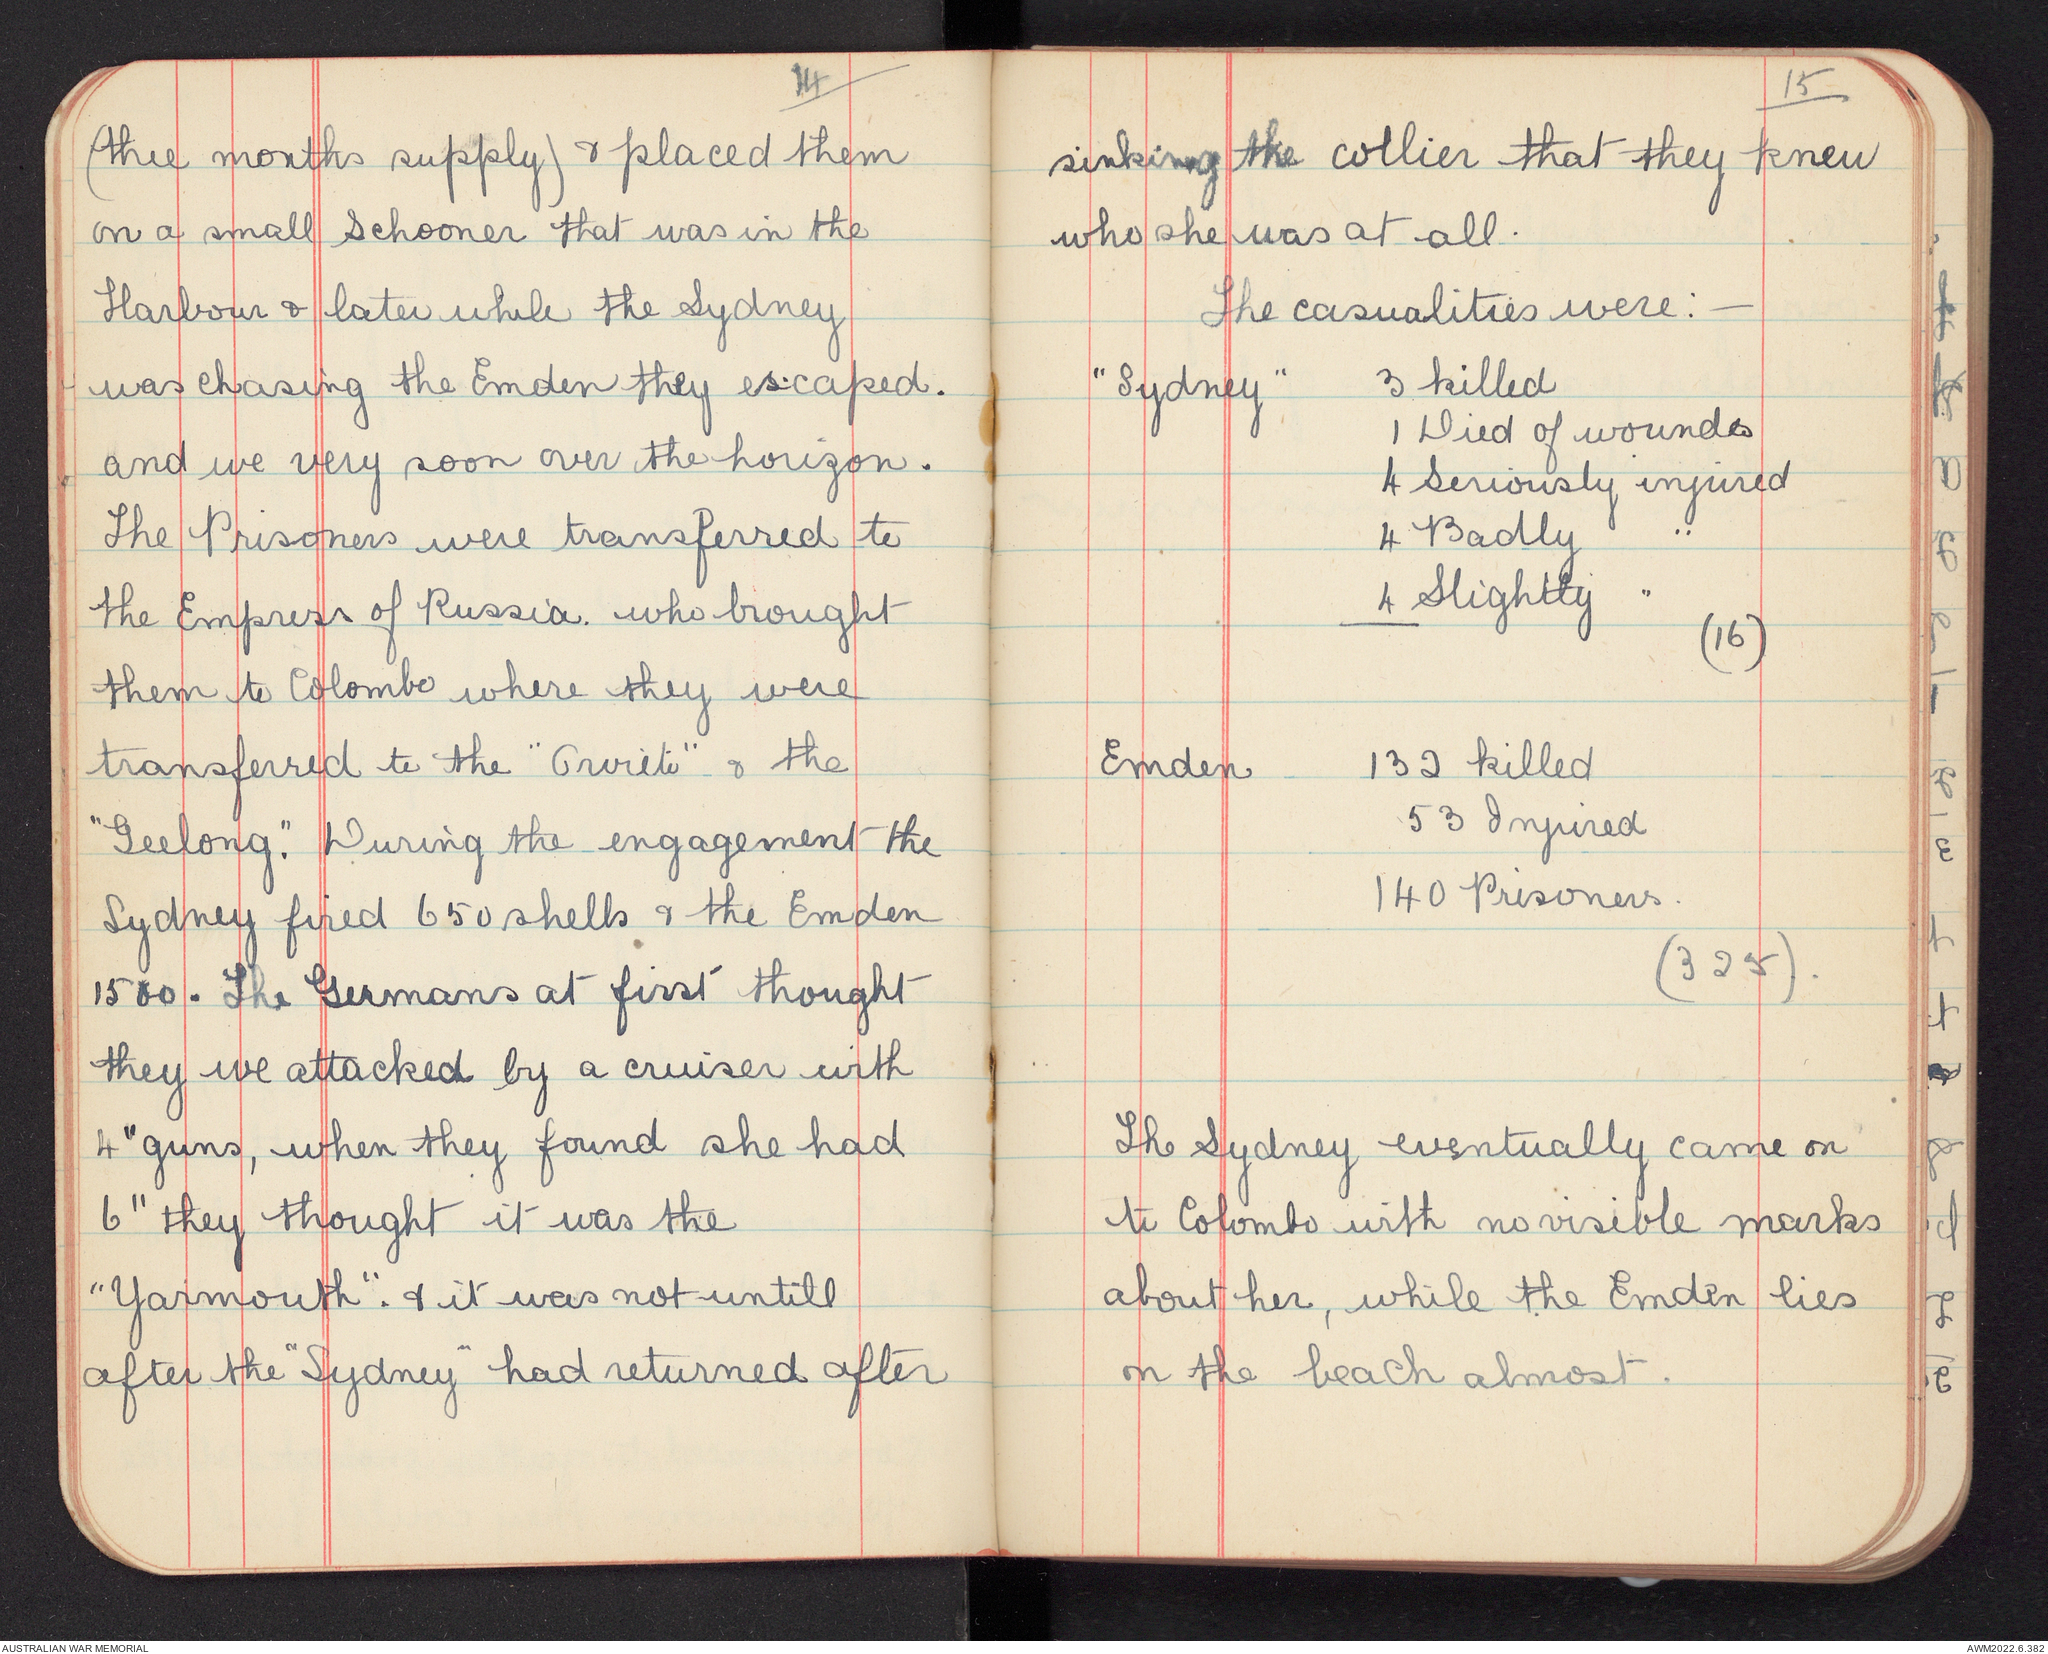 14
(thee months supply) & placed them
on a small Schooner that was in the
Harbour & later while the Sydney
was chasing the Emden they escaped.
and we very soon over the horizon.
The Prisoners were transferred to
the Empress of Russia. who brought
them to Colombo where they were
transferred to the "Orvieto" & the
"Geelong". During the engagement the
Sydney fired 650 shells & the Emden
1500. The Germans at first thought
they we attacked by a cruiser with
4" guns, when they found she had
6" they thought it was the
"Yarmouth". & it was not untill
after the "Sydney" had returned after
15
sinking the collier that they knew
who she was at all.
The casualities were: —
"Sydney" 3 killed
1 Died of wounds
4 Seriously injured
4 Badly "
4 Slightly "
(16)
Emden 132 killed
53 Injured
140 Prisoners.
(325).
The Sydney eventually came on
to Colombo with no visible marks
about her, while the Emden lies
on the beach almost.
AUSTRALIAN WAR MEMORIAL
AWM2022.6.382